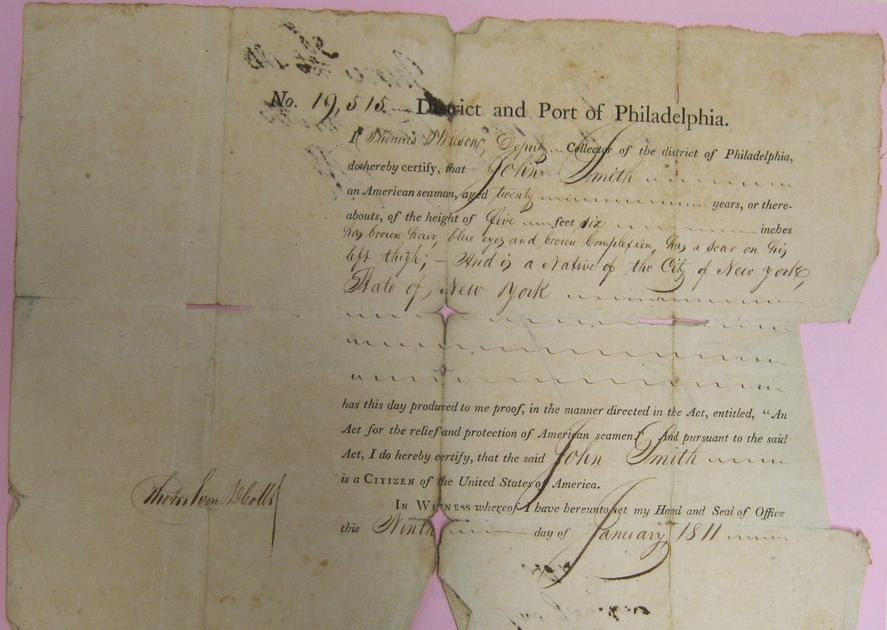 No. 19,515 District and Port of Philadelphia.
I Thomas Wilson, Deputy Collector of the district of Philadelphia,
do hereby certify, that John Smith
an American seaman, aged twenty years, or there-
abouts, of the height of five feet six inches
has brown hair, blue eyes and brown Complexion, has a scar on his
left thigh; – And is a Native of the City of New York,
State of New York
has this day produced to me proof, in the manner directed in the Act, entitled, "An
Act for the relief and protection of American seamen." And pursuant to the said
Act, I do hereby certify, that the said John Smith
is a CITIZEN of the United States of America.
In WITNESS whereof I have hereunto set my Hand and Seal of Office
this Ninth day of January 1811